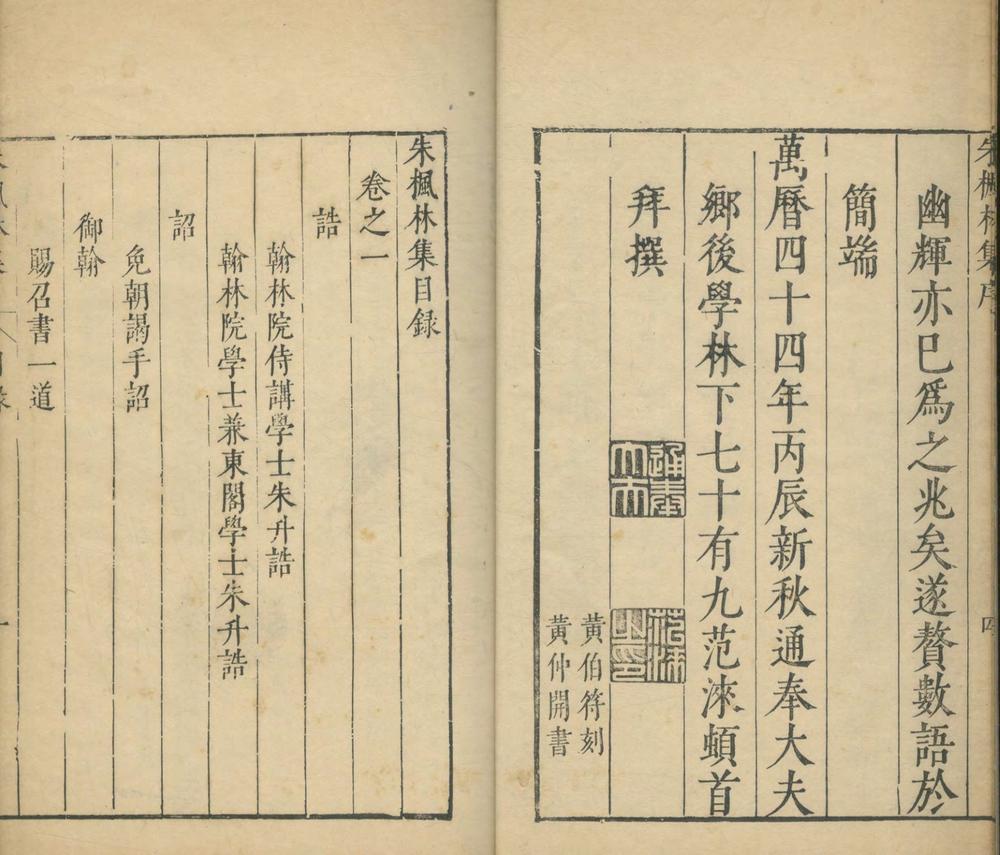 朱楓林集序
四
幽輝亦已爲之兆矣遂贅數語於
簡端
萬曆四十四年丙辰新秋通奉大夫
鄉後學林下七十有九范淶頓首
拜撰
通奉大夫
范淶之印
黃伯符刻
黃仲開書
朱楓林集目録
卷之一
誥
翰林院侍講學士朱升誥
翰林院學士兼東閣學士朱升誥
詔
免朝謁手詔
御翰
賜召書一道